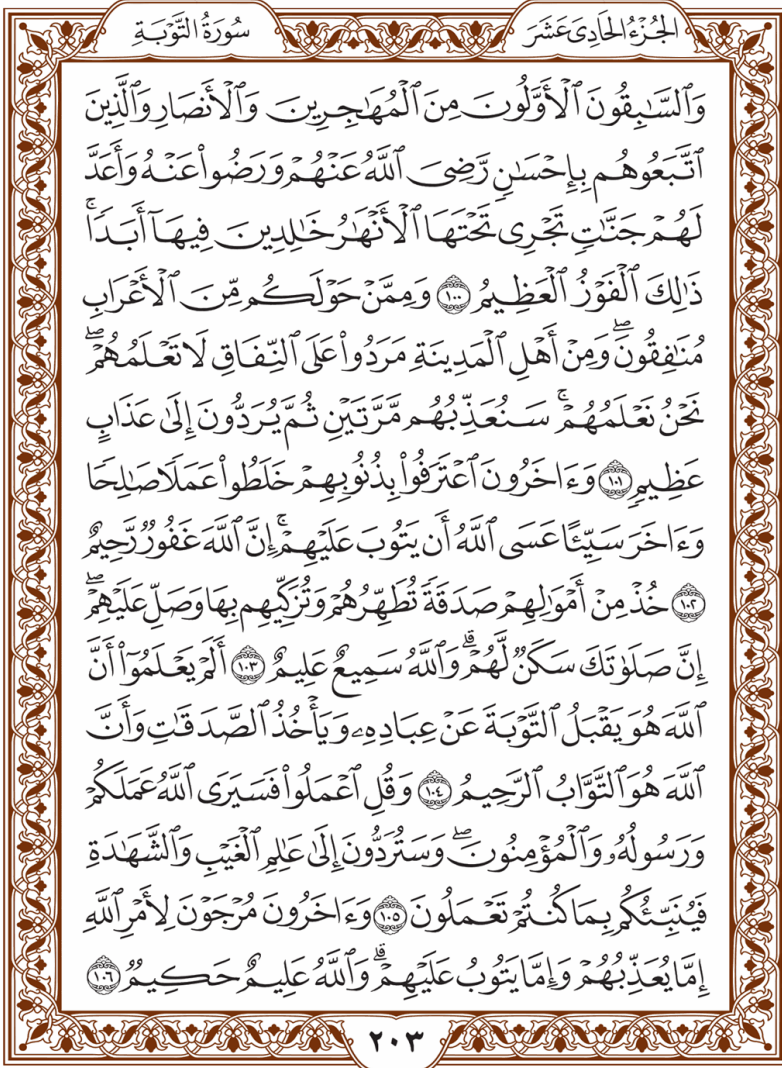 الجُزْءُ الحَادِي عَشَرَ
سُورَةُ التَّوْبَةِ
وَٱلسَّٰبِقُونَ ٱلْأَوَّلُونَ مِنَ ٱلْمُهَٰجِرِينَ وَٱلْأَنصَارِ وَٱلَّذِينَ
ٱتَّبَعُوهُم بِإِحْسَٰنٖ رَّضِيَ ٱللَّهُ عَنْهُمْ وَرَضُوا۟ عَنْهُ وَأَعَدَّ
لَهُمْ جَنَّٰتٖ تَجْرِي تَحْتَهَا ٱلْأَنْهَٰرُ خَٰلِدِينَ فِيهَآ أَبَدٗاۚ
ذَٰلِكَ ٱلْفَوْزُ ٱلْعَظِيمُ ١٠٠ وَمِمَّنْ حَوْلَكُم مِّنَ ٱلْأَعْرَابِ
مُنَٰفِقُونَۖ وَمِنْ أَهْلِ ٱلْمَدِينَةِ مَرَدُوا۟ عَلَى ٱلنِّفَاقِ لَا تَعْلَمُهُمْۖ
نَحْنُ نَعْلَمُهُمْۚ سَنُعَذِّبُهُم مَّرَّتَيْنِ ثُمَّ يُرَدُّونَ إِلَىٰ عَذَابٍ
عَظِيمٖ ١٠١ وَءَاخَرُونَ ٱعْتَرَفُوا۟ بِذُنُوبِهِمْ خَلَطُوا۟ عَمَلٗا صَٰلِحٗا
وَءَاخَرَ سَيِّئًا عَسَى ٱللَّهُ أَن يَتُوبَ عَلَيْهِمْۚ إِنَّ ٱللَّهَ غَفُورٞ رَّحِيمٌ
١٠٢ خُذْ مِنْ أَمْوَٰلِهِمْ صَدَقَةٗ تُطَهِّرُهُمْ وَتُزَكِّيهِم بِهَا وَصَلِّ عَلَيْهِمْۖ
إِنَّ صَلَوٰتَكَ سَكَنٞ لَّهُمْۗ وَٱللَّهُ سَمِيعٌ عَلِيمٌ ١٠٣ أَلَمْ يَعْلَمُوٓا۟ أَنَّ
ٱللَّهَ هُوَ يَقْبَلُ ٱلتَّوْبَةَ عَنْ عِبَادِهِۦ وَيَأْخُذُ ٱلصَّدَقَٰتِ وَأَنَّ
ٱللَّهَ هُوَ ٱلتَّوَّابُ ٱلرَّحِيمُ ١٠٤ وَقُلِ ٱعْمَلُوا۟ فَسَيَرَى ٱللَّهُ عَمَلَكُمْ
وَرَسُولُهُۥ وَٱلْمُؤْمِنُونَۖ وَسَتُرَدُّونَ إِلَىٰ عَٰلِمِ ٱلْغَيْبِ وَٱلشَّهَٰدَةِ
فَيُنَبِّئُكُم بِمَا كُنتُمْ تَعْمَلُونَ ١٠٥ وَءَاخَرُونَ مُرْجَوْنَ لِأَمْرِ ٱللَّهِ
إِمَّا يُعَذِّبُهُمْ وَإِمَّا يَتُوبُ عَلَيْهِمْۗ وَٱللَّهُ عَلِيمٌ حَكِيمٞ ١٠٦
٢٠٣